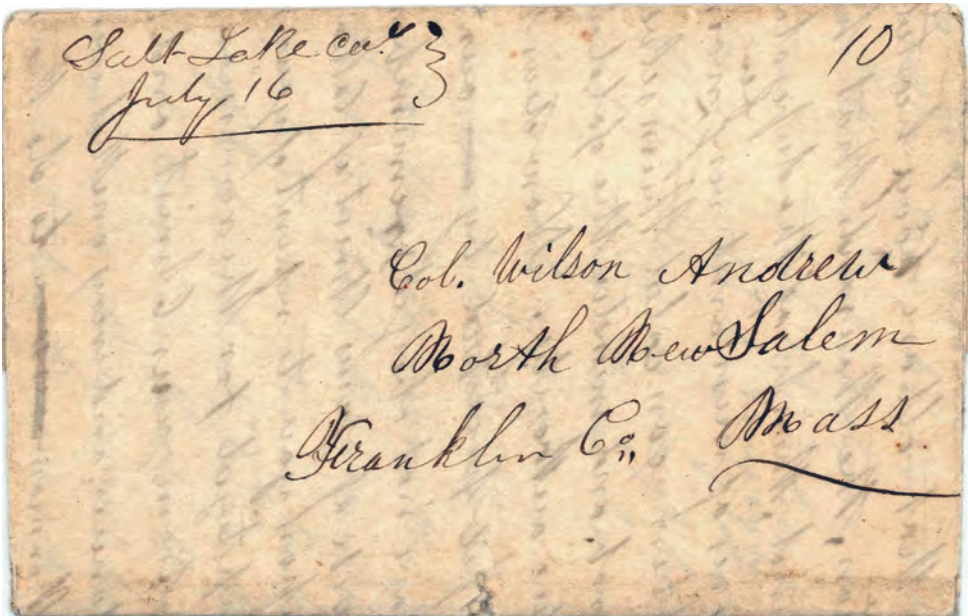 Salt Lake Ca.l
July 16
10
Col. Wilson Andrew
North New Salem
Franklin Co,,
Mass